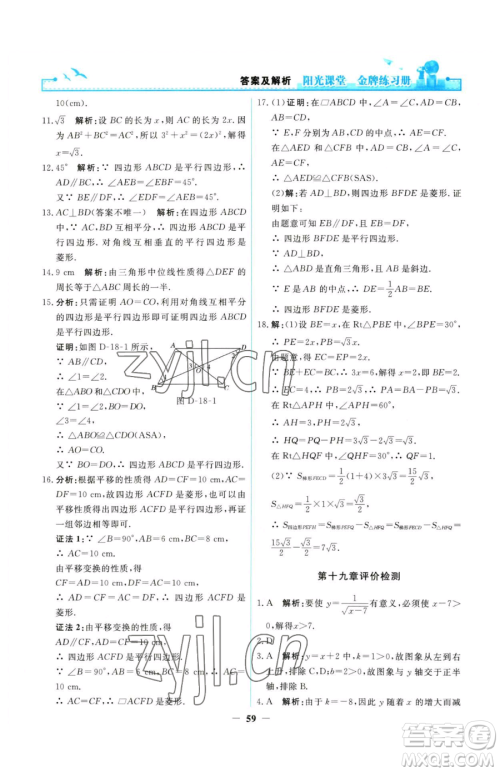 答案及解析 阳光课堂 金牌练习册
10(cm).
11.√3 解析:设 BC 的长为 x,则 AC 的长为 2x. 因
为 AB²+BC²=AC²,所以 3²+x²=(2x)². 解
得 x=√3.
12.45° 解析:∵ 四边形 ABCD 是平行四边形,∴
AD∥BC,∴ ∠AEB=∠FBE=45°.
又∵ BE∥DF,∴ ∠ADF=∠AEB=45°.
13.AC⊥BD(答案不唯一) 解析:在四边形 ABCD
中,∵ AB∥CD,AB=CD,∴ 四边形 ABCD 是平
行四边形. 对角线互相垂直的平行四边形是
菱形.
14.9 cm 解析:由三角形中位线性质得△DEF 的
周长等于△ABC 周长的一半.
15.分析:只需证明 AO=CO,利用对角线互相平分
的四边形是平行四边形即可证出四边形 ABCD
是平行四边形.
证明:如图 D-18-1 所示,
∵ AB∥CD,
∴ ∠1=∠2.
在△ABO 和△CDO 中,
∵ ∠1=∠2,BO=DO,
∠3=∠4,
图 D-18-1
∴ △ABO≌△CDO(ASA).
∴ AO=CO.
又∵ BO=DO,∴ 四边形 ABCD 是平行四边形.
16.分析:根据平移的性质得 AD=CF=10 cm. 要证
四边形 ACFD 是菱形,可以根据勾股定理求得
AC=10 cm,则四边形 ACFD 是菱形,也可以由
平移性质得出四边形 ACFD 是平行四边形,再证
一组邻边相等即可.
证法 1:∵ ∠B=90°,AB=6 cm,BC=8 cm,
∴ AC=10 cm.
由平移变换的性质,得
CF=AD=10 cm,DF=AC=10 cm.
∴ AD=CF=AC=DF.
∴ 四边形 ACFD 是菱形.
证法 2:由平移变换的性质,得
AD∥CF,AD=CF=10 cm.
∴ 四边形 ACFD 是平行四边形.
∵ ∠B=90°,AB=6 cm,BC=8 cm,
∴ AC=10 cm.
∴ AD=AC.
∴ □ACFD 是菱形.
17.(1)证明:在□ABCD 中,AB=CD,BC=AD,
∠A=∠C.
∵ E,F 分别为边 AB,CD 的中点,∴ AE=CF.
在△AED 和△CFB 中,AE=CF,∠A=∠C,
AD=BC,
∴ △AED≌△CFB(SAS).
(2)解:若 AD⊥BD,则四边形 BFDE 是菱形. 证
明如下:
由题意可得 BE∥DF,且 BE=DF,
∴ 四边形 BFDE 是平行四边形.
∵ AD⊥BD,
∴ △ABD 是直角三角形,且∠ADB=90°.
∵ E 是 AB 的中点,∴ DE=½AB=BE.
∴ 平行四边形 BFDE 是菱形.
18.解:(1)设 BE=x,在 Rt△PBE 中,∠BPE=30°,
∴ PE=2x,PB=√3x.
由题意,得 EC=PE=2x.
∵ BE+EC=BC,∴ 3x=3,x=1.
∴ BE=1,EC=2,PB=√3.
∴ AP=AB−PB=2√3.
在 Rt△APH 中,∠APH=60°,
∴ AH=3,PH=√3.
∴ HQ=PQ−PH=3√3−√3=2√3.
在 Rt△HFQ 中,QF=2.
(2)∵ S梯形FECD=½(1+4)×3√3=15√3/2,
S△HFQ=½×1×√3=√3/2,
∴ S四边形PEFH=S梯形FECD−S△HFQ=
15√3/2−√3/2=7√3.
第十九章评价检测
1.A 解析:要使函数 y=1/√(x−7)有意义,必须 x−7>
0,解得 x>7.
2.D
3.A 解析:y=x+2 中,k=1>0,故图象从左向右
上升,排除 C,D;b=2>0,故图象与 y 轴交于正半
轴,排除 B.
4.B 解析:由于 k=−8,因此 y 随 x 的增大而减
zyjl.cn
59